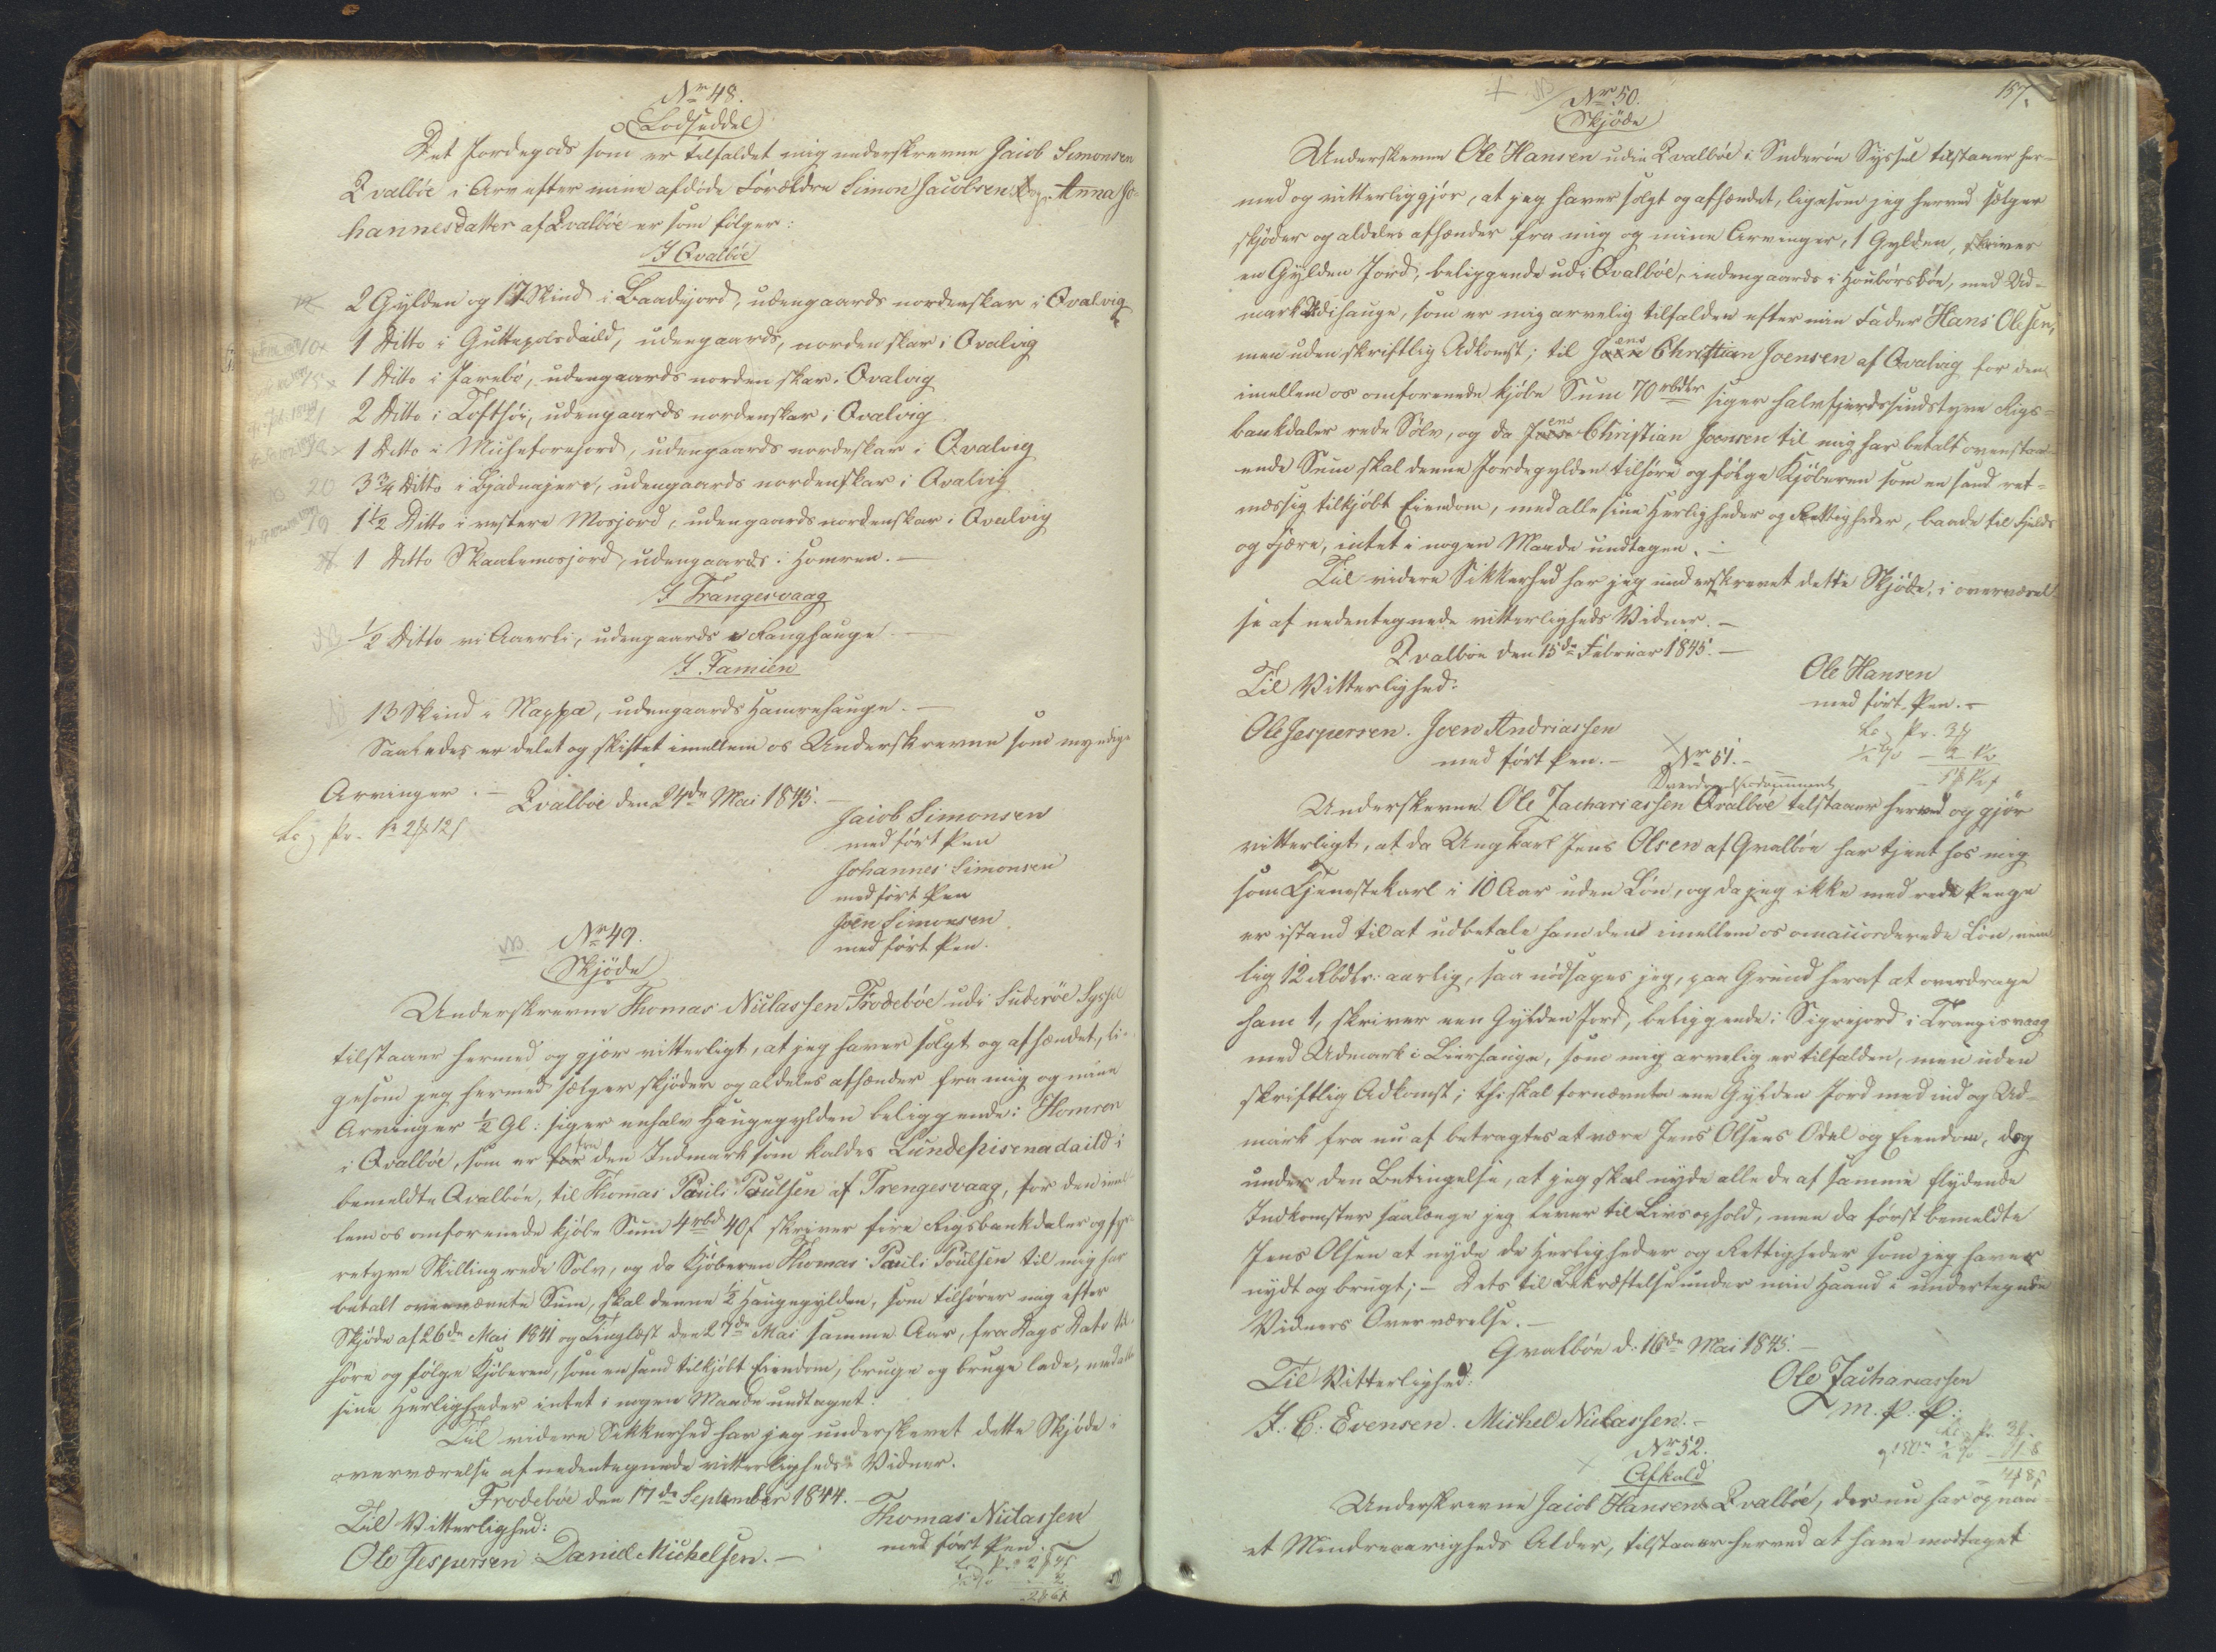 Nr 48.
Lodseddel
Det Jordegods som er tilfaldet mig underskrevne Jacob Simonsen
Qvalböe i Arv efter mine afdöde Forældre Simon Jacobsen & Anna Jo-
hannesdatter af Qvalböe er som fölger:
I Qvalböe
2 Gylden og 17 Skind i Baadejord, udengaards nordenskar i Qvalvig
10 1 Ditto i Guttapolsdaild, udengaards, norden skar i Qvalvig
15 1 Ditto i Jarebö, udengaards norden skar i Qvalvig
21 2 Ditto i Lofthöi, udengaards nordenskar i Qvalvig
1 Ditto i Muhrtorefjord, udengaards nordeskar i Qvalvig
20 3 3/4 Ditto i Bjadnajere, udengaards nordenskar i Qvalvig
19 1 1/2 Ditto i vestere Mosjord, udengaards nordenskar i Qvalvig
1 Ditto Skaalemosjord, udengaards i Homren.—
I Trangesvaag
NB 1/2 Ditto vi Aaerli, udengaards Ranghauge.—
I Famien
NB 13 Skind i Nappa, udengaards Hamrehauge.—
Saaledes er delet og skiftet imellem os Underskrevne som myndige
Arvinger.—
Qvalböe den 24de Mai 1845.—
Jacob Simonsen
med fört Pen
Johannes Simonsen
med fört Pen
Joen Simonsen
med fört Pen.
NB. Nr 49.
Skjöde
Underskrevne Thomas Niclassen Frodeböe udi Suderöe Syssel
tilstaaer hermed og gjör vitterligt, at jeg haver solgt og afhændet, li-
gesom jeg hermed sælger skjöder og aldeles afhænder fra mig og mine
Arvinger 1/2 Gl: siger enhalv Haugegylden beliggende i Homren
i Qvalböe, som er fra den Indmark som kaldes Lundepisenadaild i
bemeldte Qvalböe, til Thomas Pauli Poulsen af Trengesvaag, for den imel-
lem os omforenede kjöbe Sum 4 rbd 40 s skriver fire Rigsbankdaler og fyr-
retyve Skilling rede Sölv, og da Kjöberen Thomas Pauli Poulsen til mig har
betalt ovennævnte Sum, skal denne 1/2 Haugegylden, som tilhörer mig efter
Skjöde af 26de Mai 1841 og Tinglæst den 27de Mai samme Aar, fra Dags Dato til-
höre og fölge Kjöberen, som en sand tilkjöbt Eiendom, bruge og bruge lade, med alle
sine Herligheder intet i nogen Maade undtaget.
Til videre Sikkerhed har jeg underskrevet dette Skjöde i
overværelse af nedentegnede vitterligheds Vidner.
Frodeböe den 17de September 1844.—
Til Vitterlighed:
Thomas Niclassen
med fört Pen.
Ole Jespersen Daniel Michelsen.—
157.
NB Nr 50.
Skjöde
Underskrevne Ole Hansen udi Qvalböe i Suderöe Syssel tilstaaer her-
med og vitterliggjör, at jeg haver solgt og afhændet, ligesom jeg herved sælger
skjöder og aldeles afhænder fra mig og mine Arvinger, 1 Gylden, skriver
en Gylden Jord, beliggende udi Qvalböe, indengaards i Houborsböe, med Ud-
mark hauge, som er mig arvelig tilfalden efter min Fader Hans Olesen,
men uden skriftlig Adkomst; til Jens Christian Joensen af Qvalvig for den
imellem os omforenede kjöbe Sum 70 rbdlr siger halvfjerdsindstyve Rigs-
bankdaler rede Sölv, og da Jens Christian Joensen til mig har betalt ovenstaa-
ende Sum skal denne Jordegylden tilhöre og fölge Kjöberen som en sand ret-
mæssig tilkjöbt Eiendom, med alle sine Herligheder og Rettigheder, baade til Fjelds
og Fjære, intet i nogen Maade undtagen.—
Til videre Sikkerhed har jeg underskrevet dette Skjöde, i overværel-
se af nedentegnede vitterligheds Vidner.—
Qvalböe den 15de Februar 1845.—
Til Vitterlighed:
Ole Hansen
med fört Pen.—
Ole Jespersen. Joen Andriassen
med fört Pen.—
Nr 51.—
Underskrevne Ole Zachariassen Qvalböe tilstaaer herved og gjör
vitterligt, at da Ungkarl Jens Olsen af Qvalböe har tjent hos mig
som Tjenestekarl i 10 Aar uden Lön, og da jeg ikke med rede Penge
er istand til at udbetale ham den imellem os omaccorderede Lön, nem-
lig 12 Rbdlr: aarlig, saa nödsages jeg, paa Grund heraf at overdrage
ham 1, skriver een Gylden Jord, beliggende i Sigrejord i Trangisvaag
med Udmark i Lierhauge, som mig arvelig er tilfalden, men uden
skriftlig Adkomst; thi skal fornævnte ene Gylden Jord med ind og Ud-
mark fra nu af betragtes at være Jens Olsens Odel og Eiendom, dog
under den Betingelse, at jeg skal nyde alle de af samme flydende
Indkomster saalænge jeg lever til Livsophold, men da först bemeldte
Jens Olsen at nyde de Herligheder og Rettigheder som jeg haver
nydt og brugt;— Dets til Bekræftelse under min Haand i undertegnede
Vidners Overværelse.—
Qvalböe d. 16de Mai 1845.—
Til Vitterlighed:
Ole Zachariassen
m. f. P.
J. C. Evensen. Michel Niclassen.—
Nr 52.
Afkald
Underskrevne Jacob Hansen Qvalböe, der nu har opnaa-
et Mindreaarigheds Alder, tilstaaer herved at have modtaget